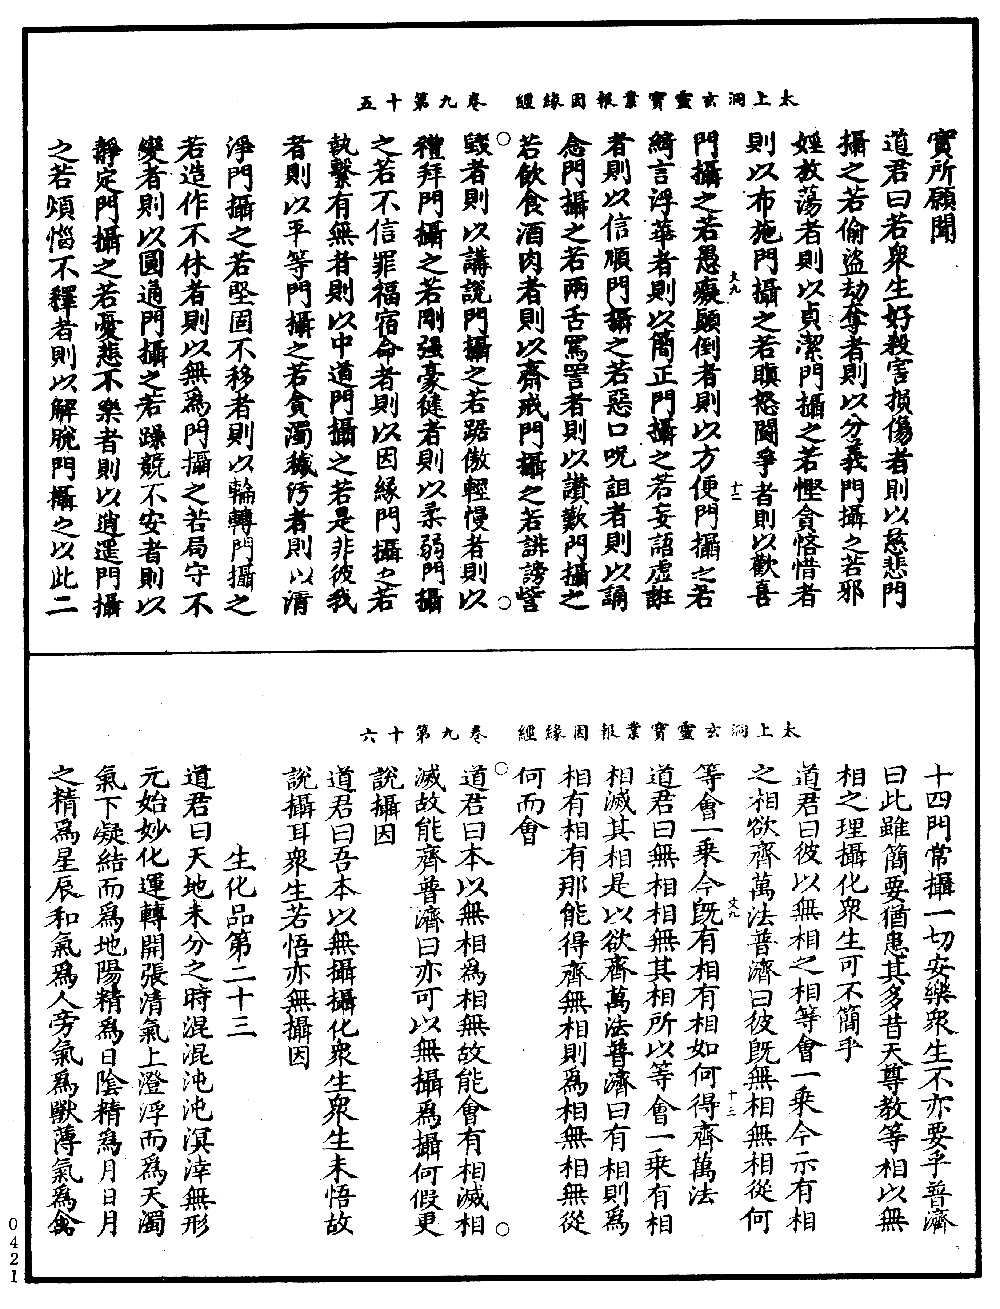 太上洞玄靈寶業報因緣經　卷九第十五
實所願聞
道君曰若衆生好殺害損傷者則以慈悲門
攝之若偷盜劫奪者則以分義門攝之若邪
婬放蕩者則以貞潔門攝之若慳貪悋惜者
則以布施門攝之若瞋怒鬭爭者則以歡喜
門攝之若愚癡顛倒者則以方便門攝之若
綺言浮華者則以簡正門攝之若妄語虛誑
者則以信順門攝之若惡口呪詛者則以誦
念門攝之若兩舌罵詈者則以讚歎門攝之
若飲食酒肉者則以齋戒門攝之若誹謗訾
毀者則以講說門攝之若踞傲輕慢者則以
禮拜門攝之若剛强豪健者則以柔弱門攝
之若不信罪福宿命者則以因緣門攝之若
執繫有無者則以中道門攝之若是非彼我
者則以平等門攝之若貪濁穢污者則以清
淨門攝之若堅固不移者則以輪轉門攝之
若造作不休者則以無爲門攝之若局守不
變者則以圓通門攝之若躁競不安者則以
靜定門攝之若憂悲不樂者則以逍遥門攝
之若煩惱不釋者則以解脫門攝之以此二
文九
十二
太上洞玄靈寶業報因緣經　卷九第十六
十四門常攝一切安樂衆生不亦要乎普濟
曰此雖簡要猶患其多昔天尊教等相以無
相之理攝化衆生可不簡乎
道君曰彼以無相之相等會一乘今示有相
之相欲齊萬法普濟曰彼旣無相無相從何
等會一乘今旣有相有相如何得齊萬法
道君曰無相相無其相所以等會一乘有相
相滅其相是以欲齊萬法普濟曰有相則爲
相有相有那能得齊無相則爲相無相無從
何而會
道君曰本以無相爲相無故能會有相滅相
滅故能齊普濟曰亦可以無攝爲攝何假更
說攝因
道君曰吾本以無攝攝化衆生衆生未悟故
說攝耳衆生若悟亦無攝因
生化品第二十三
道君曰天地未分之時混混沌沌溟涬無形
元始妙化運轉開張清氣上澄浮而爲天濁
氣下凝結而爲地陽精爲日陰精爲月日月
之精爲星辰和氣爲人旁氣爲獸薄氣爲禽
文九
十三
0421